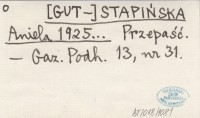 [GUT-] STAPIŃSKA
Aniela 1925... Przepaść.
– Gaz. Podh. 13, nr 31.